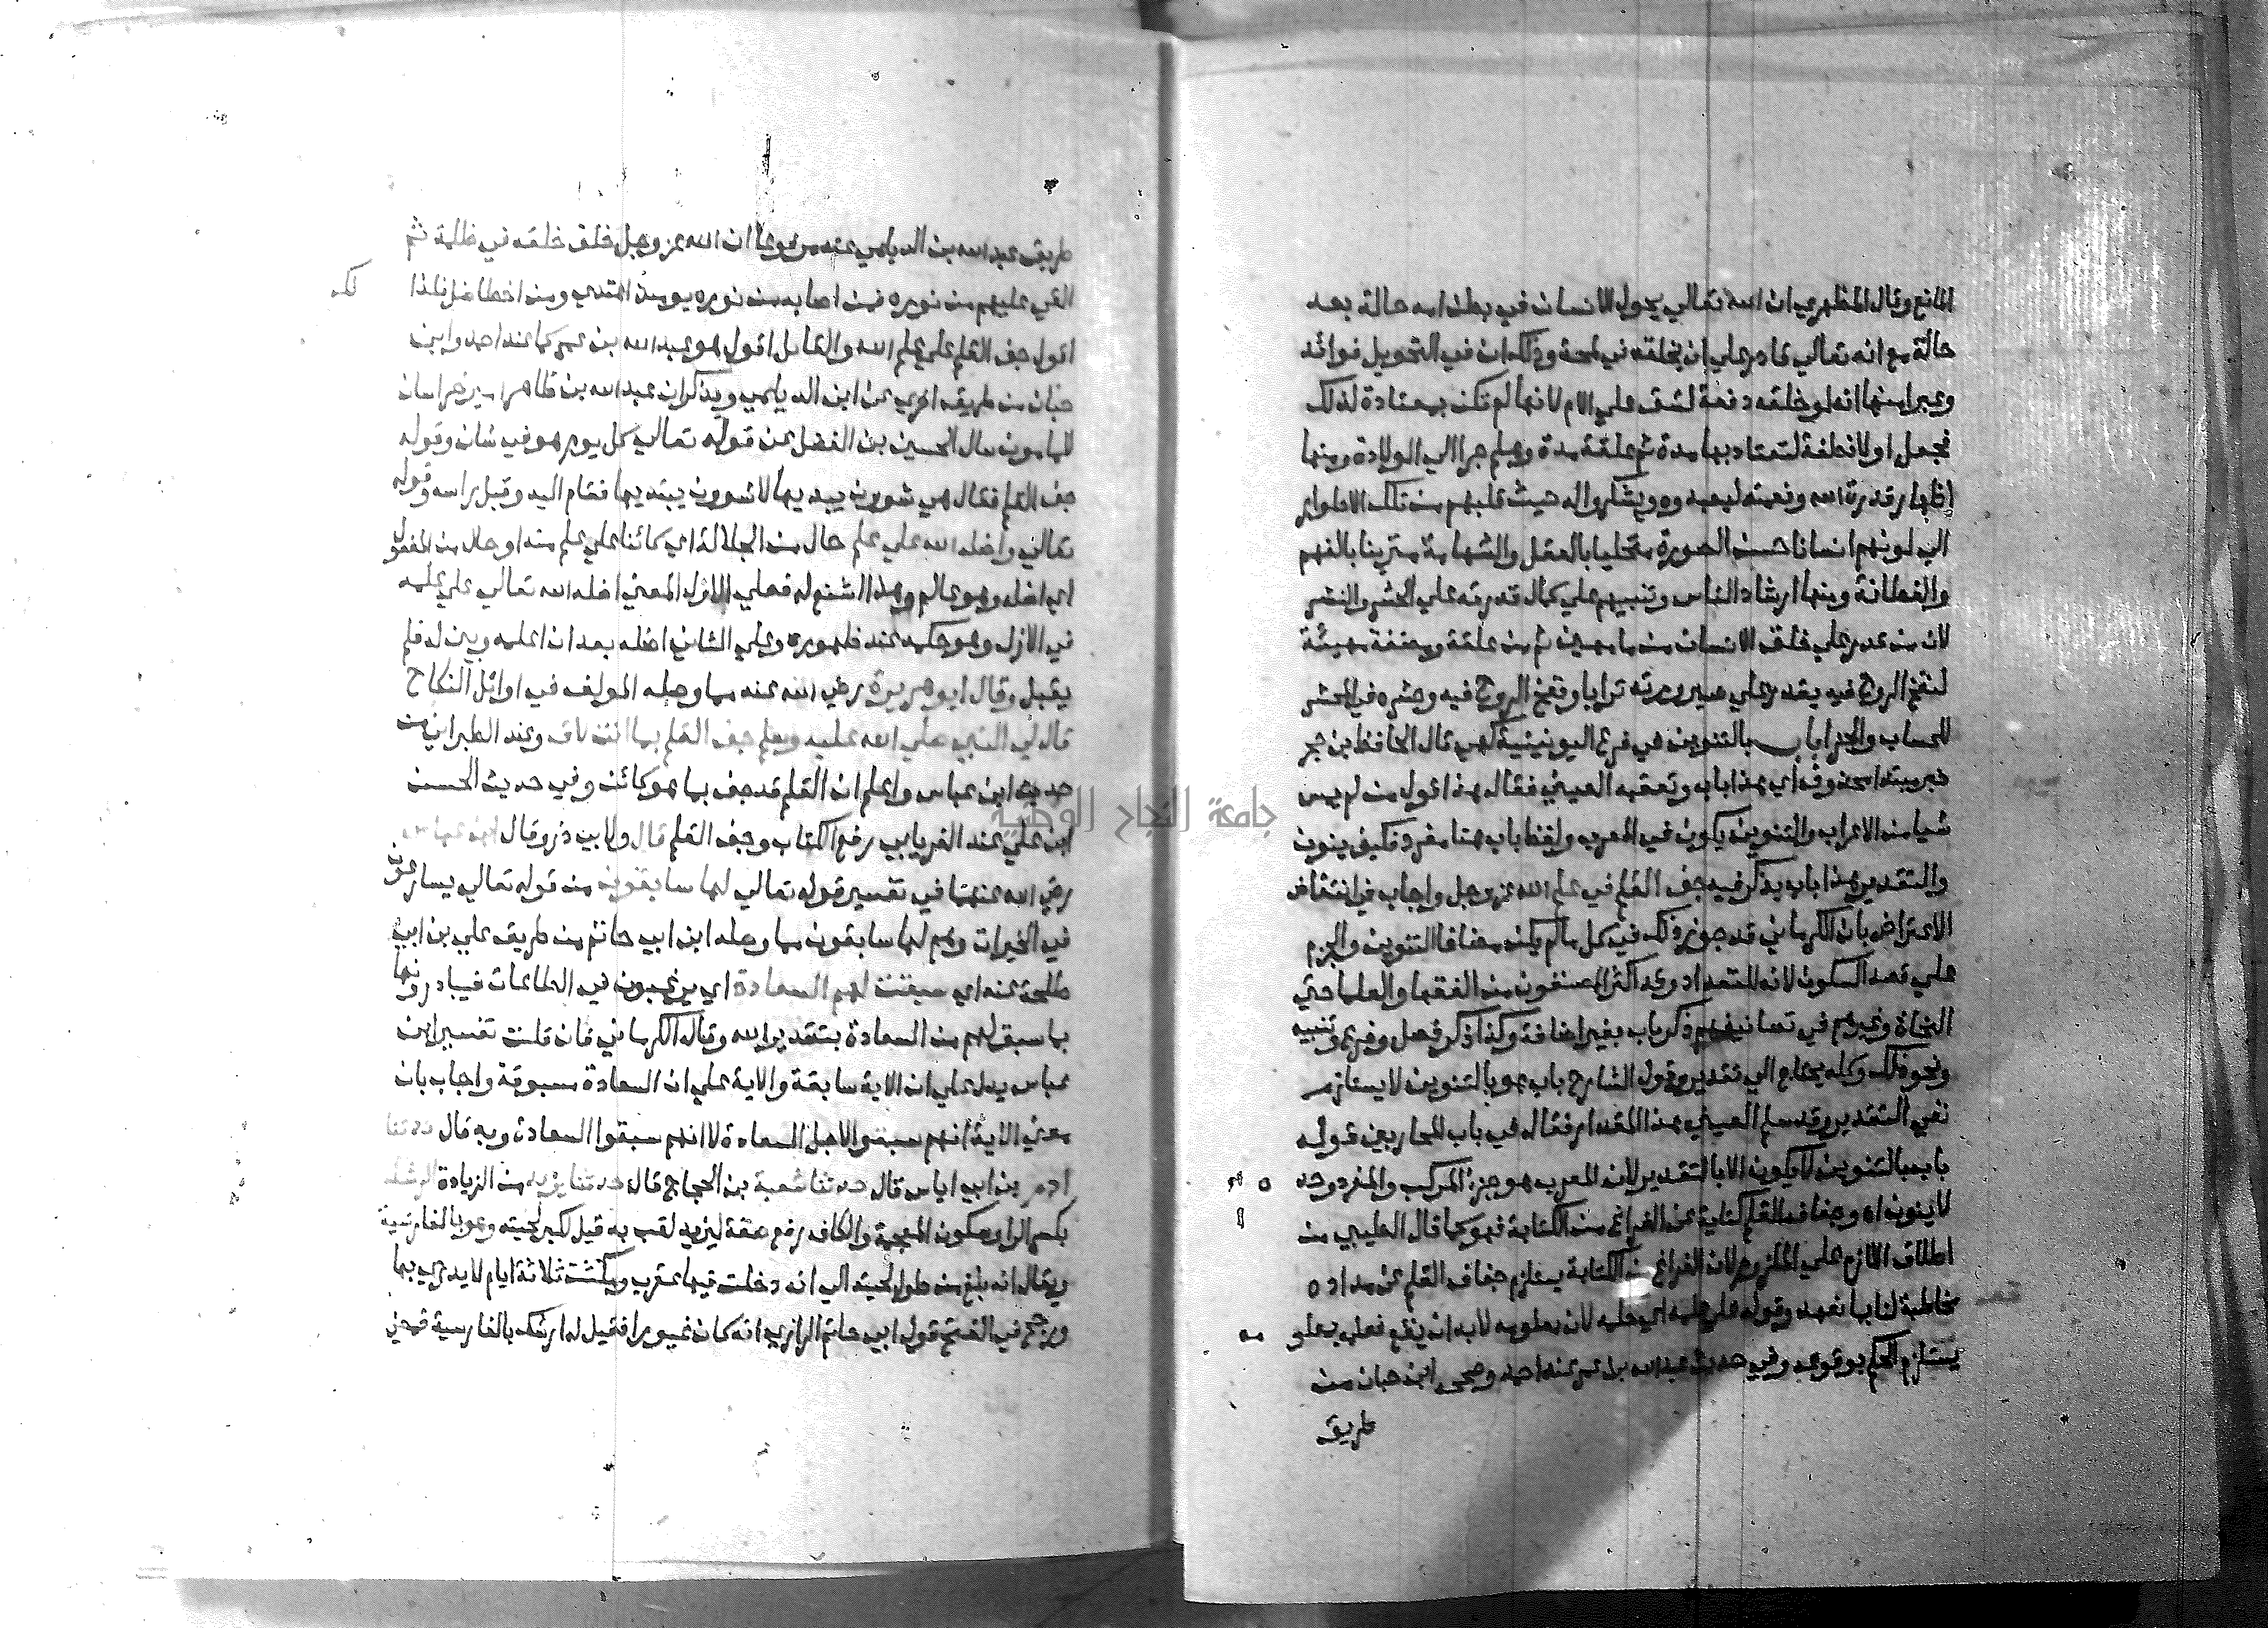 المانع وقال المظهري ان الله تعالي يحول الانسان في بطن امه حالة بعد
حالة مع انه تعالي قادر علي ان يخلقه في لمحة وذلك ان في التحويل فوائد
وعبرا منها انه لو خلقه دفعة لشق علي الام لانها لم تكن معتادة لذلك
فجعل اولا نطفة لتعتاد بها مدة ثم علقة مدة وهلم جرا الي الولادة ومنها
اظهار قدرة الله ونعمته ليعبدوه ويشكروا له حيث قلبهم من تلك الاطوار
الي كونهم انسانا حسن الصورة متحليا بالعقل والشهامة متزينا بالفهم
والفطانة ومنها ارشاد الناس وتنبيههم علي كمال قدرته علي الحشر والنشر
لان من قدر علي خلق الانسان من ما مهين ثم من علقة ومضغة مهيئة
لنفخ الروح فيه يقدر علي صيرورته ترابا ونفخ الروح فيه وحشره في المحشر
للحساب والجزا باب بالتنوين في فرع اليونينية كهي قال الحافظ بن حجر
خبر مبتدا محذوف اي هذا باب وتعقبه العيني فقال هذا قول من لم يمس
شيا من الاعراب والتنوين يكون في المعرب ولفظ باب هنا مفرد فكيف ينون
والتقدير هذا باب يذكر فيه جف القلم في علم الله عز وجل واجاب في انتقاض
الاعتراض بان الكرماني قد جوز ذلك في كل ما لم يكن مضافا التنوين والجزم
علي قصد السكون لانه للتعداد وقد اكثر المصنفون من الفقها والعلما حتي
النحاة وغيرهم في تصانيفهم ذكر باب بغير اضافة وكذا ذكر فصل وفرع وتنبيه
ونحو ذلك وكله يحتاج الي تقدير وقول الشارح باب هو بالتنوين لا يستلزم
نفي التقدير وقد سلم العيني هذا المقدار فقال في باب المحاربين قوله
باب بالتنوين لا يكون الا بالتقدير لان المعرب هو جزء المركب والمفرد وحده
لا ينون اه وجفاف القلم كناية عن الفراغ من الكتابة فهو كما قال الطيبي من
اطلاق اللازم علي الملزوم لان الفراغ من الكتابة يستلزم جفاف القلم عن مداده
مخاطبة لنا بما نعهد وقوله علي علمه اي حكمه لان معلومه لا بد ان يقع فعلمه بمعلوم
يستلزم الحكم بوقوعه وفي حديث عبد الله بن عمر عند احمد وصححه ابن حبان من
طريق
طريق عبد الله بن الديلمي عنه مرفوعا ان الله عز وجل خلق خلقه في ظلمة ثم
القي عليهم من نوره فمن اصابه من نوره يومئذ اهتدي ومن اخطا ضل فلذا
لك
اقول جف القلم علي علم الله والقائل اقول هو عبد الله بن عمر كما عند احمد وابن
حبان من طريق اخري عن ابن الديلمي ويذكر ان عبد الله بن طاهر امير خراسان
للمامون سال الحسين بن الفضل عن قوله تعالي كل يوم هو في شان وقوله
جف القلم فقال هي شوون يبديها لا شوون يبتديها فقام اليه وقبل راسه وقوله
تعالي واضله الله علي علم حال من الجلالة اي كائنا علي علم منه او حال من المفعول
اي اضله وهو عالم وهذا اشنع له فعلي الاول المعني اضله الله تعالي علي علمه
في الازل وهو حكمه عند ظهوره وعلي الثاني اضله بعد ان اعلمه وبين له فلم
يقبل وقال ابو هريرة رضي الله عنه مما وصله المولف في اوائل النكاح
قال لي النبي صلي الله عليه وسلم جف القلم بما انت لاق وعند الطبراني من
حديث ابن عباس واعلم ان القلم قد جف بما هو كائن وفي حديث الحسن
ابن علي عند الفريابي رفع الكتاب وجف القلم قال ولابي ذر وقال ابن عباس
رضي الله عنهما في تفسير قوله تعالي لها سابقون من قوله تعالي يسارعون
في الخيرات وهم لها سابقون مما وصله ابن ابي حاتم من طريق علي بن ابي
طلحة عنه اي سبقت لهم السعادة اي يرغبون في الطاعات فيبادرونها
بما سبق لهم من السعادة بتقدير الله وقال الكرماني فان قلت تفسير ابن
عباس يدل علي ان الاية سابقة والاية علي ان السعادة مسبوقة واجاب بان
معني الاية انهم سبقوا لاجل السعادة لا انهم سبقوا السعادة وبه قال حدثنا
ادم بن ابي اياس قال حدثنا شعبة بن الحجاج قال حدثنا يزيد من الزيادة الرشك
بكسر الرا وسكون المعجمة والكاف رفع صفة ليزيد لقب به قيل لكبر لحيته وهو بالفارسية
ويقال انه بلغ من طول لحيته الي انه دخلت فيها عقرب ومكثت ثلاثة ايام لا يدري بها
ورجح في الفتح قول ابي حاتم الرازي انه كان غيورا فقيل له ارشك بالفارسية فمضي
جامعة النجاح الوطنية